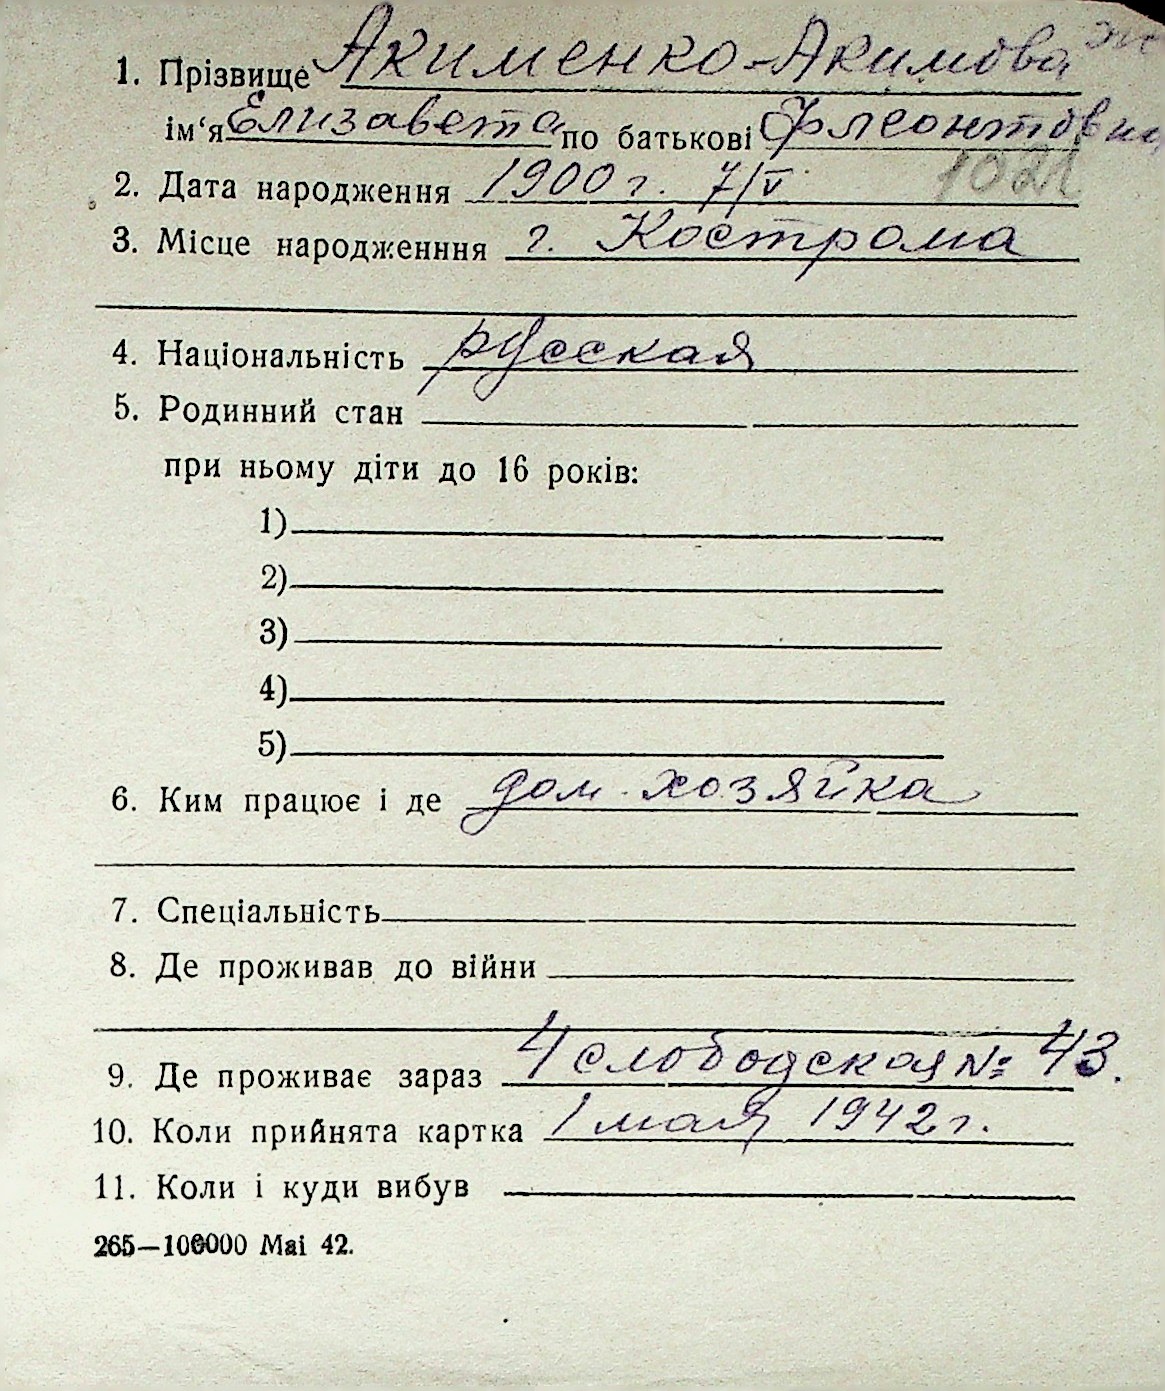 1. Прізвище Акименко-Акимова
ім'я Елизавета по батькові Флеонтовн
1021
2. Дата народження 1900 г. 7/V
3. Місце народженння г. Кострома
4. Національність русская
5. Родинний стан
при ньому діти до 16 років:
1)
2)
3)
4)
5)
6. Ким працює і де дом. хозяйка
7. Спеціальність
8. Де проживав до війни
9. Де проживає зараз 4 слободская № 43.
10. Коли прийнята картка 1 мая 1942 г.
11. Коли і куди вибув
265—100000 Mai 42.